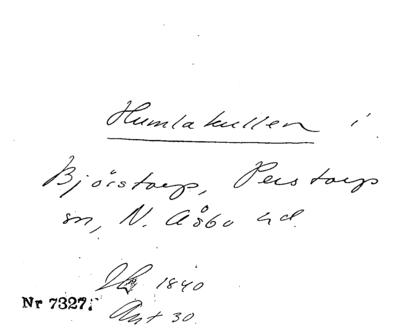 Humlakullen i
Bjärstorp, Perstorp
sn, N. Åsbo hd.
1840
Nr 7327.
Ant 30